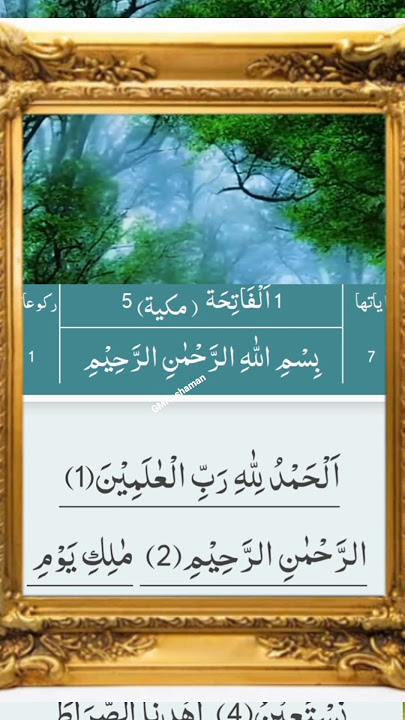 ایاتها 1 اَلْفَاتِحَة (مكية) 5 ركوعا
7 بِسْمِ اللهِ الرَّحْمٰنِ الرَّحِيْمِ 1
اَلْحَمْدُ لِلّٰهِ رَبِّ الْعٰلَمِيْنَ(1)
الرَّحْمٰنِ الرَّحِيْمِ(2) مٰلِكِ يَوْمِ
نَسْتَعِيْنُ(4) اِهْدِنَا الصِّرَاطَ